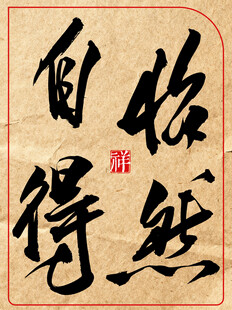 怡然
自得
祥